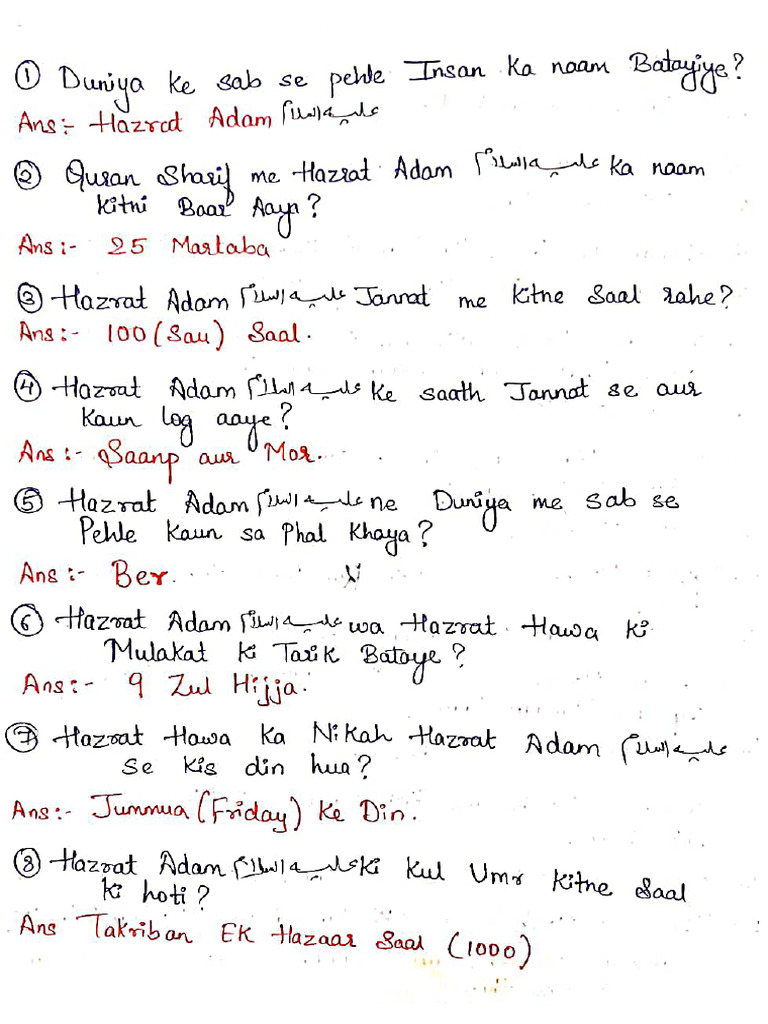 ① Duniya ke sab se pehle Insan ka naam Batayiye?
Ans:- Hazrat Adam علیہ السلام
② Quran Sharif me Hazrat Adam علیہ السلام ka naam
kitni Baar Aaya?
Ans:- 25 Martaba
③ Hazrat Adam علیہ السلام Jannat me kitne saal rahe?
Ans:- 100 (Sau) Saal.
④ Hazrat Adam علیہ السلام ke saath Jannat se aur
kaun log aaye?
Ans:- Saanp aur Mor.
⑤ Hazrat Adam علیہ السلام ne Duniya me sab se
Pehle kaun sa Phal khaya?
Ans:- Ber.
⑥ Hazrat Adam علیہ السلام wa Hazrat Hawa ki
Mulakat ki Tarik Bataye?
Ans:- 9 Zul Hijja.
⑦ Hazrat Hawa ka Nikah Hazrat Adam علیہ السلام
se kis din hua?
Ans:- Jummua (Friday) ke Din.
⑧ Hazrat Adam علیہ السلام ki kul Umr kitne saal
ki hoti?
Ans Takriban EK Hazaar Saal (1000)